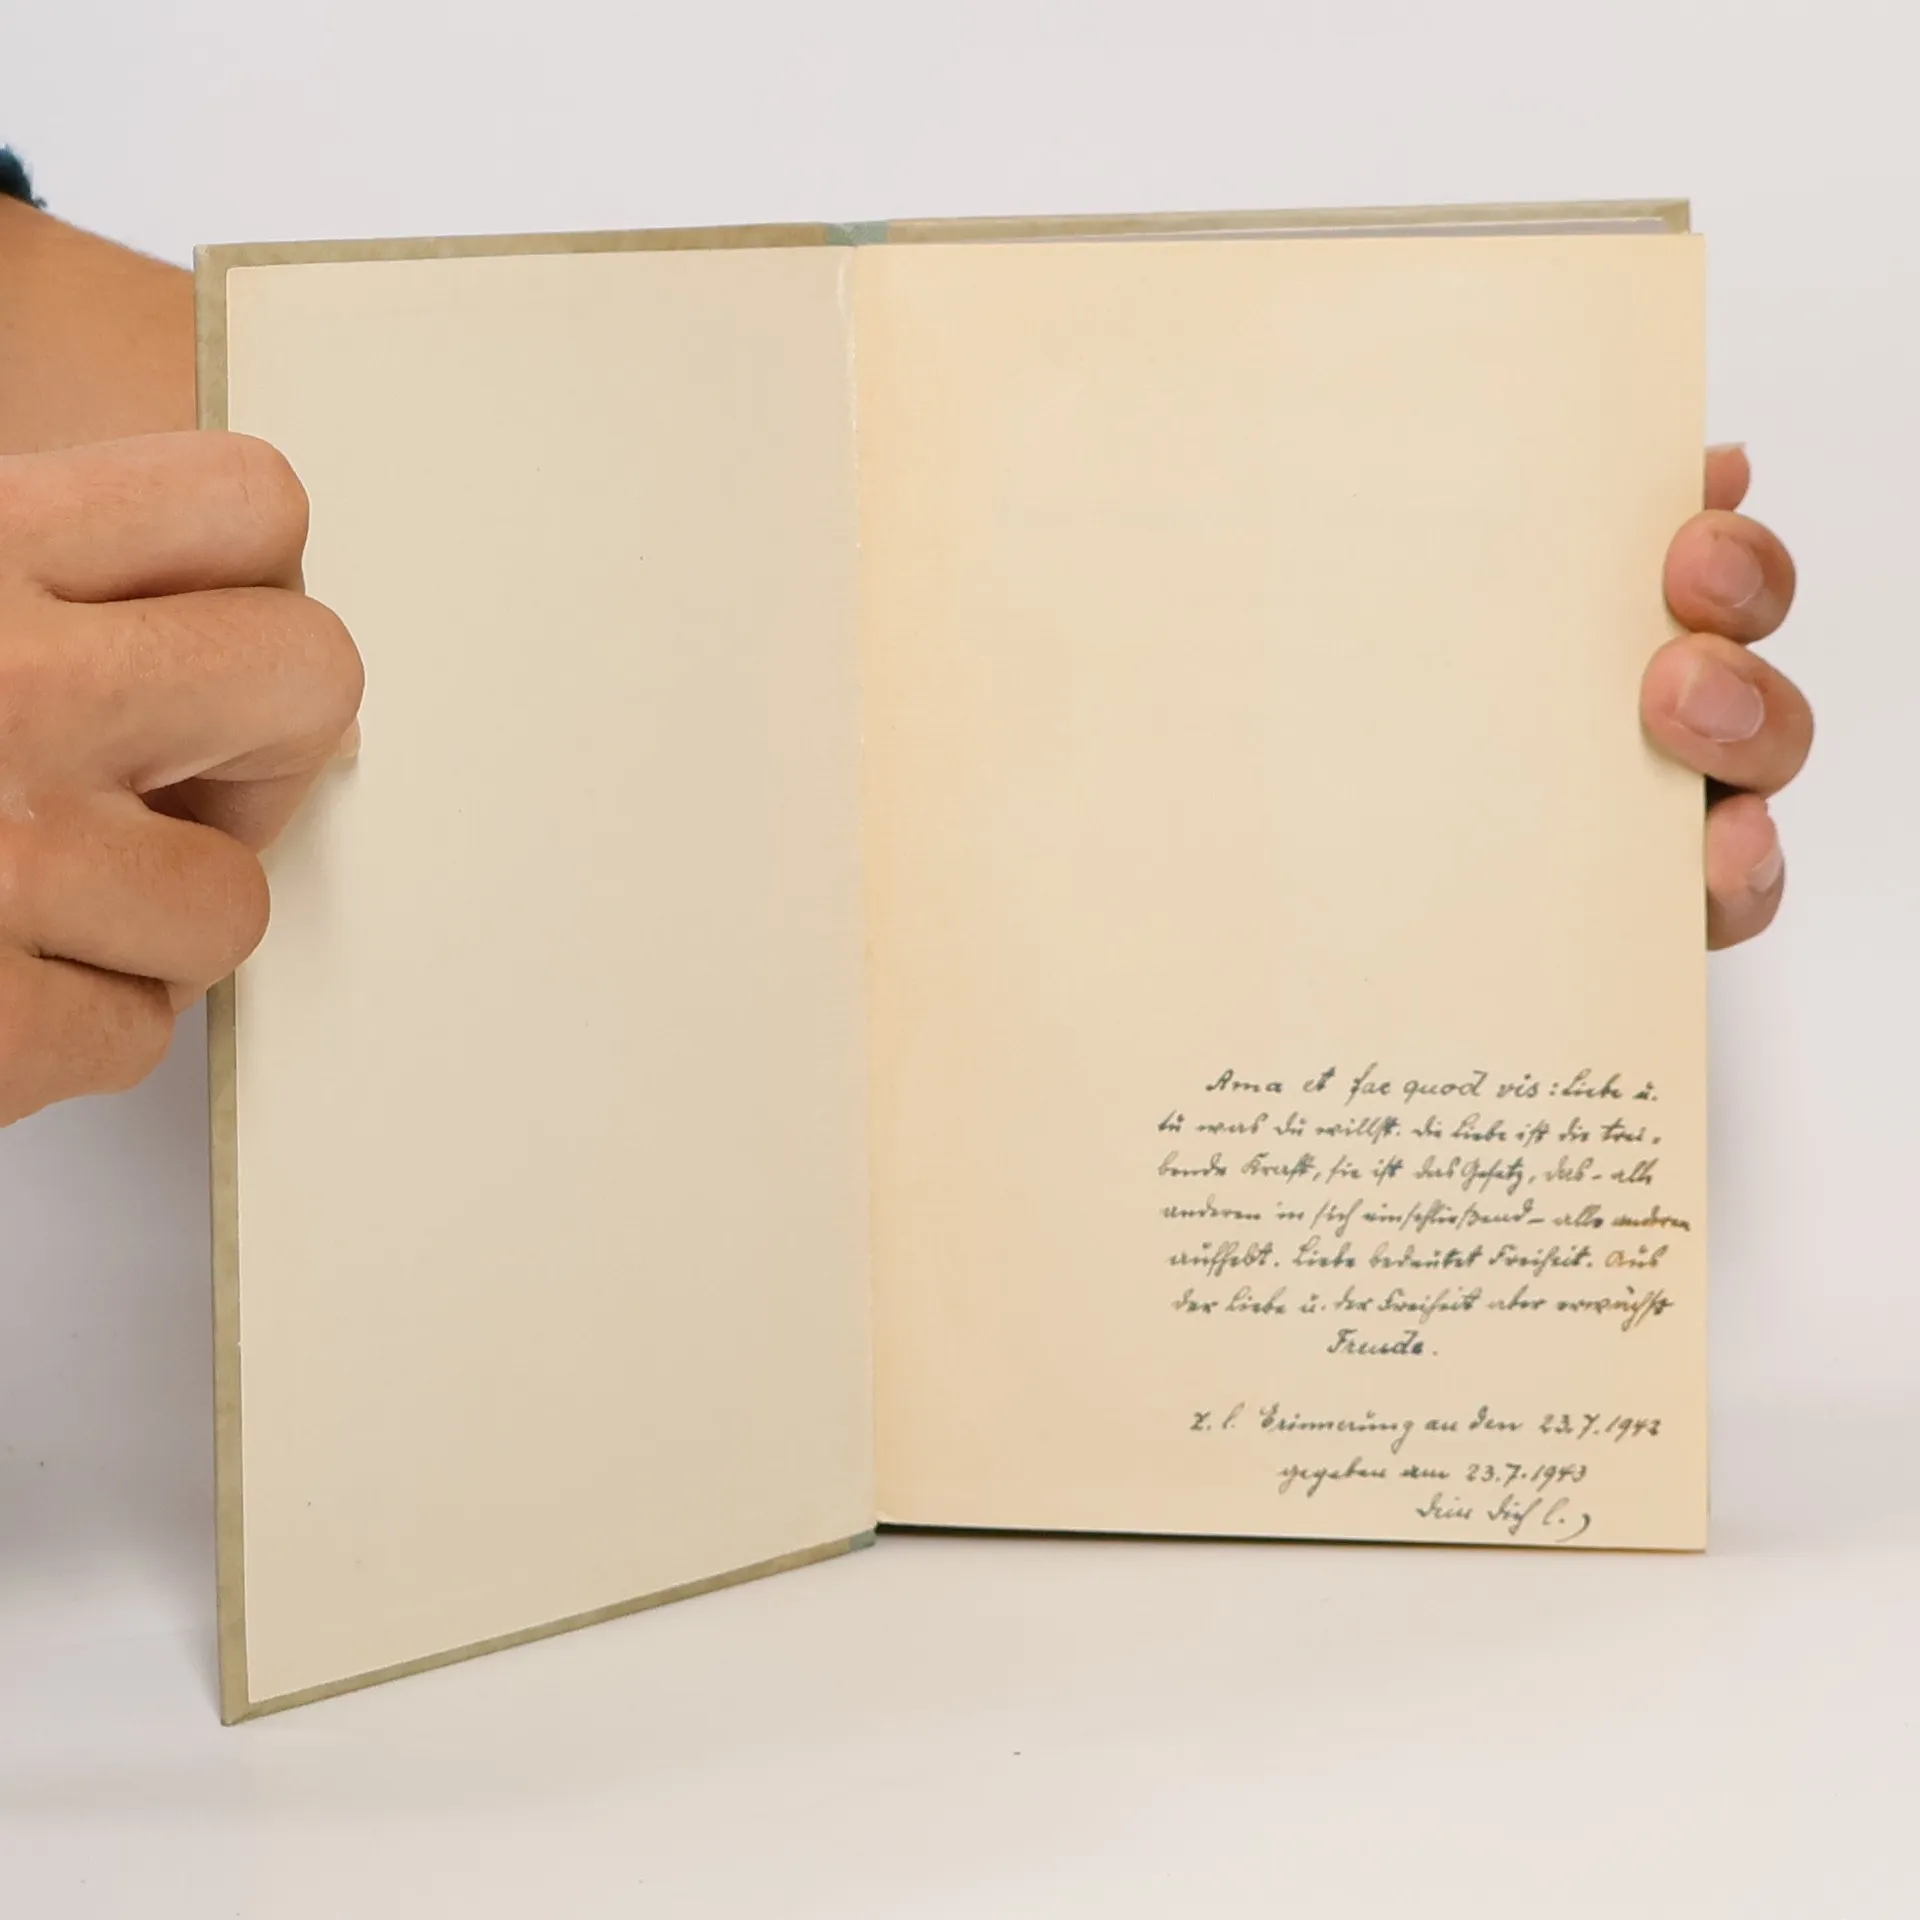 Ama et fac quod vis: Liebe u.
tu was du willst. Die Liebe ist die trei-
bende Kraft, sie ist das Gesetz, das - alle
anderen in sich einschließend - alle anderen
aufhebt. Liebe bedeutet Freiheit. Aus
der Liebe u. der Freiheit aber erwächst
Freude.
z. l. Erinnerung an den 23.7.1942
gegeben am 23.7.1943
Dein Dich l.